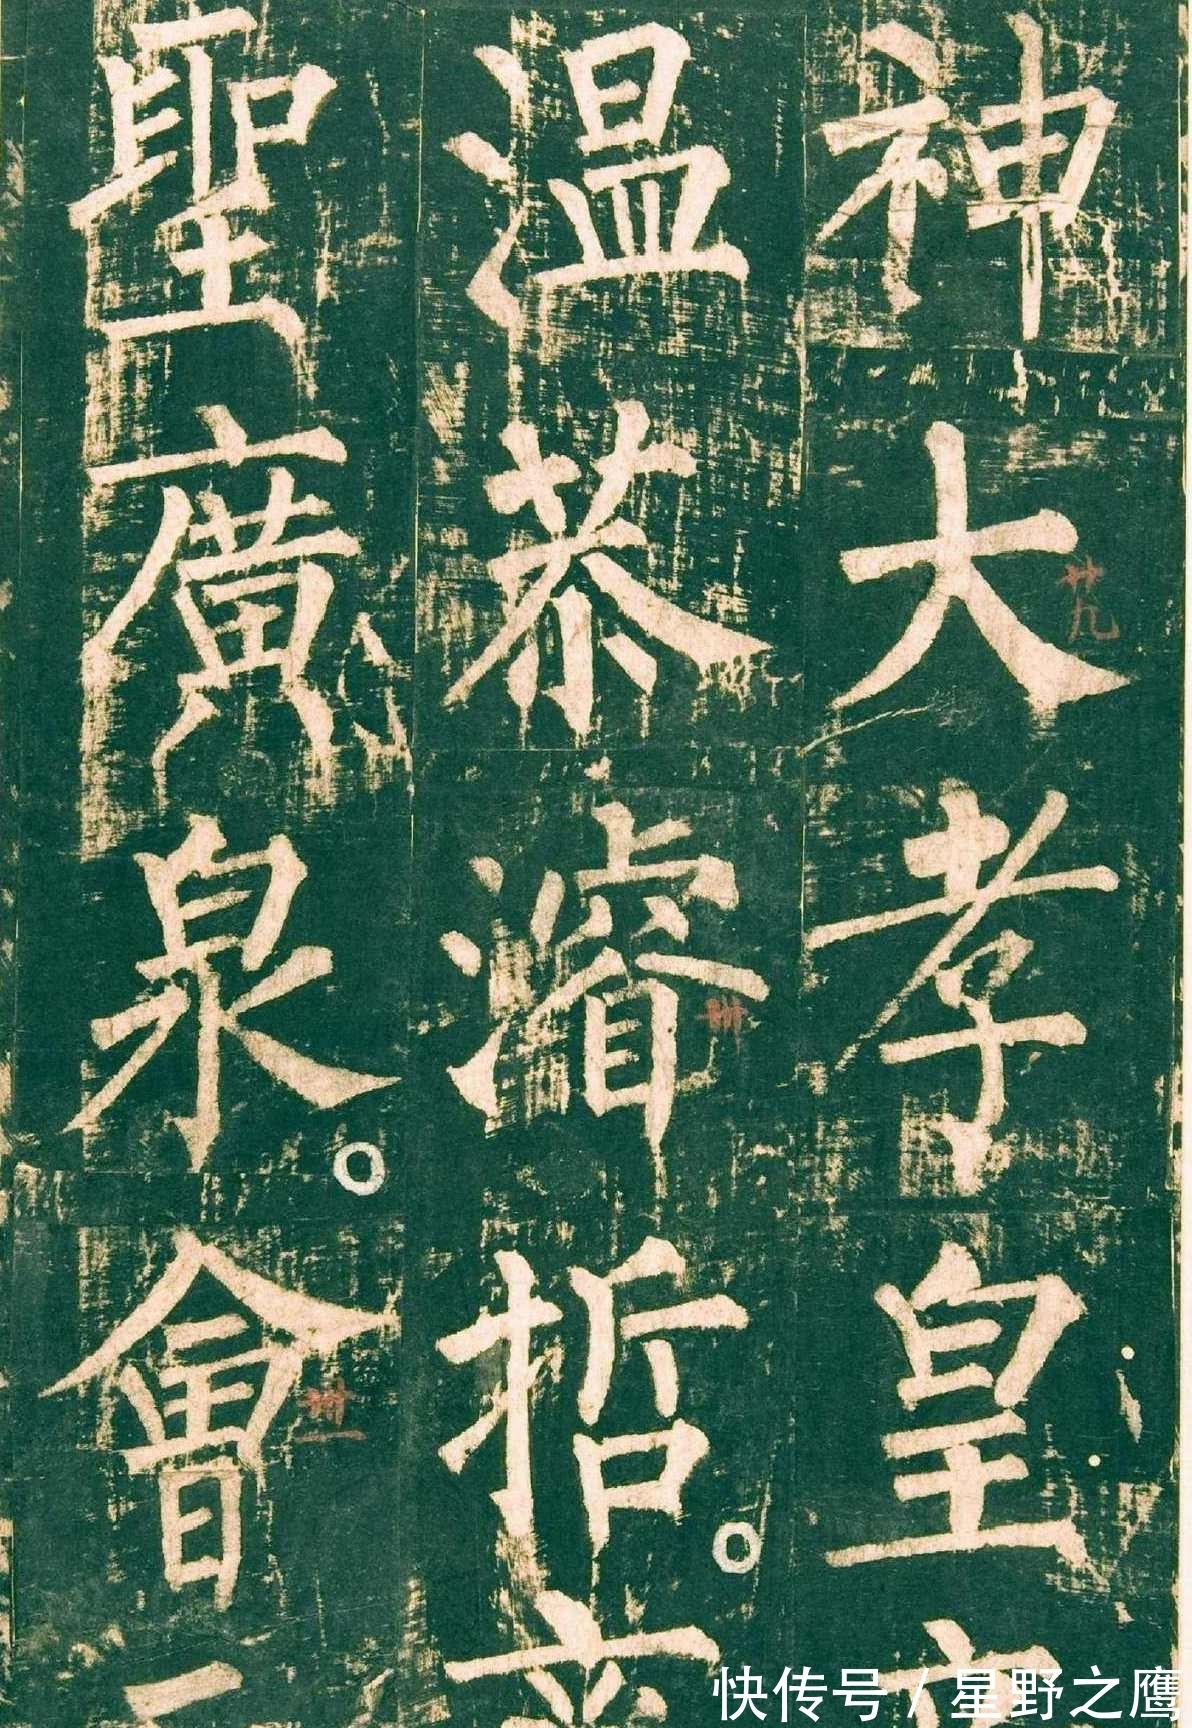 神大孝皇
温恭濬哲
聖廣泉會
廿九
卅
卅一
快传号 / 星野之鹰